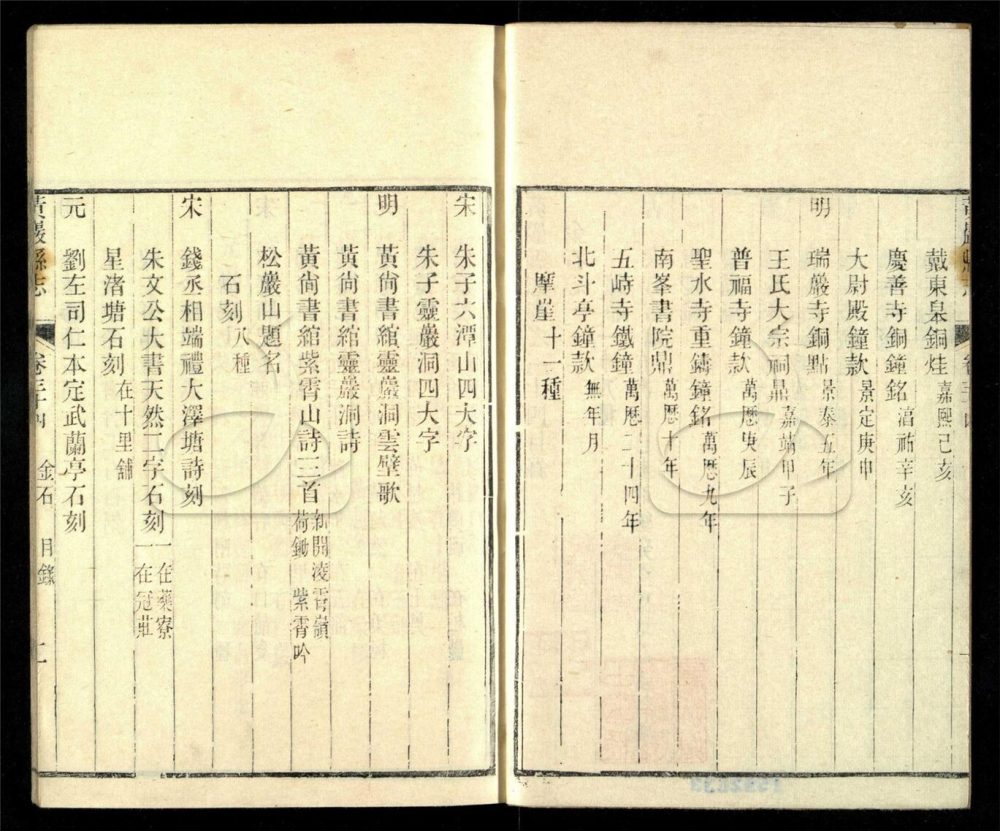 戴東臯銅𤇆嘉熙己亥
慶善寺銅鐘銘淳祐辛亥
大尉殿鐘款景定庚申
明　瑞巖寺銅點景泰五年
王氏大宗祠鼎嘉靖甲子
普福寺鐘款萬厯庚辰
聖水寺重鑄鐘銘萬厯九年
南峯書院鼎萬厯十年
五峙寺鐵鐘萬厯二十四年
北斗亭鐘款無年月
摩崖十一種
宋　朱子六潭山四大字
朱子靈巖洞四大字
明　黃尙書綰靈巖洞雲壁歌
黃尙書綰靈巖洞詩
黃尙書綰紫霄山詩三首新開淩霄嶺　荷鋤　紫霄吟
松巖山題名
石刻八種
宋　錢丞相端禮大澤塘詩刻
朱文公大書天然二字石刻一在藥寮一在冠莊
星渚塘石刻在十里鋪
元　劉左司仁本定武蘭亭石刻
黃巖縣志　卷三十四　金石　目錄　二